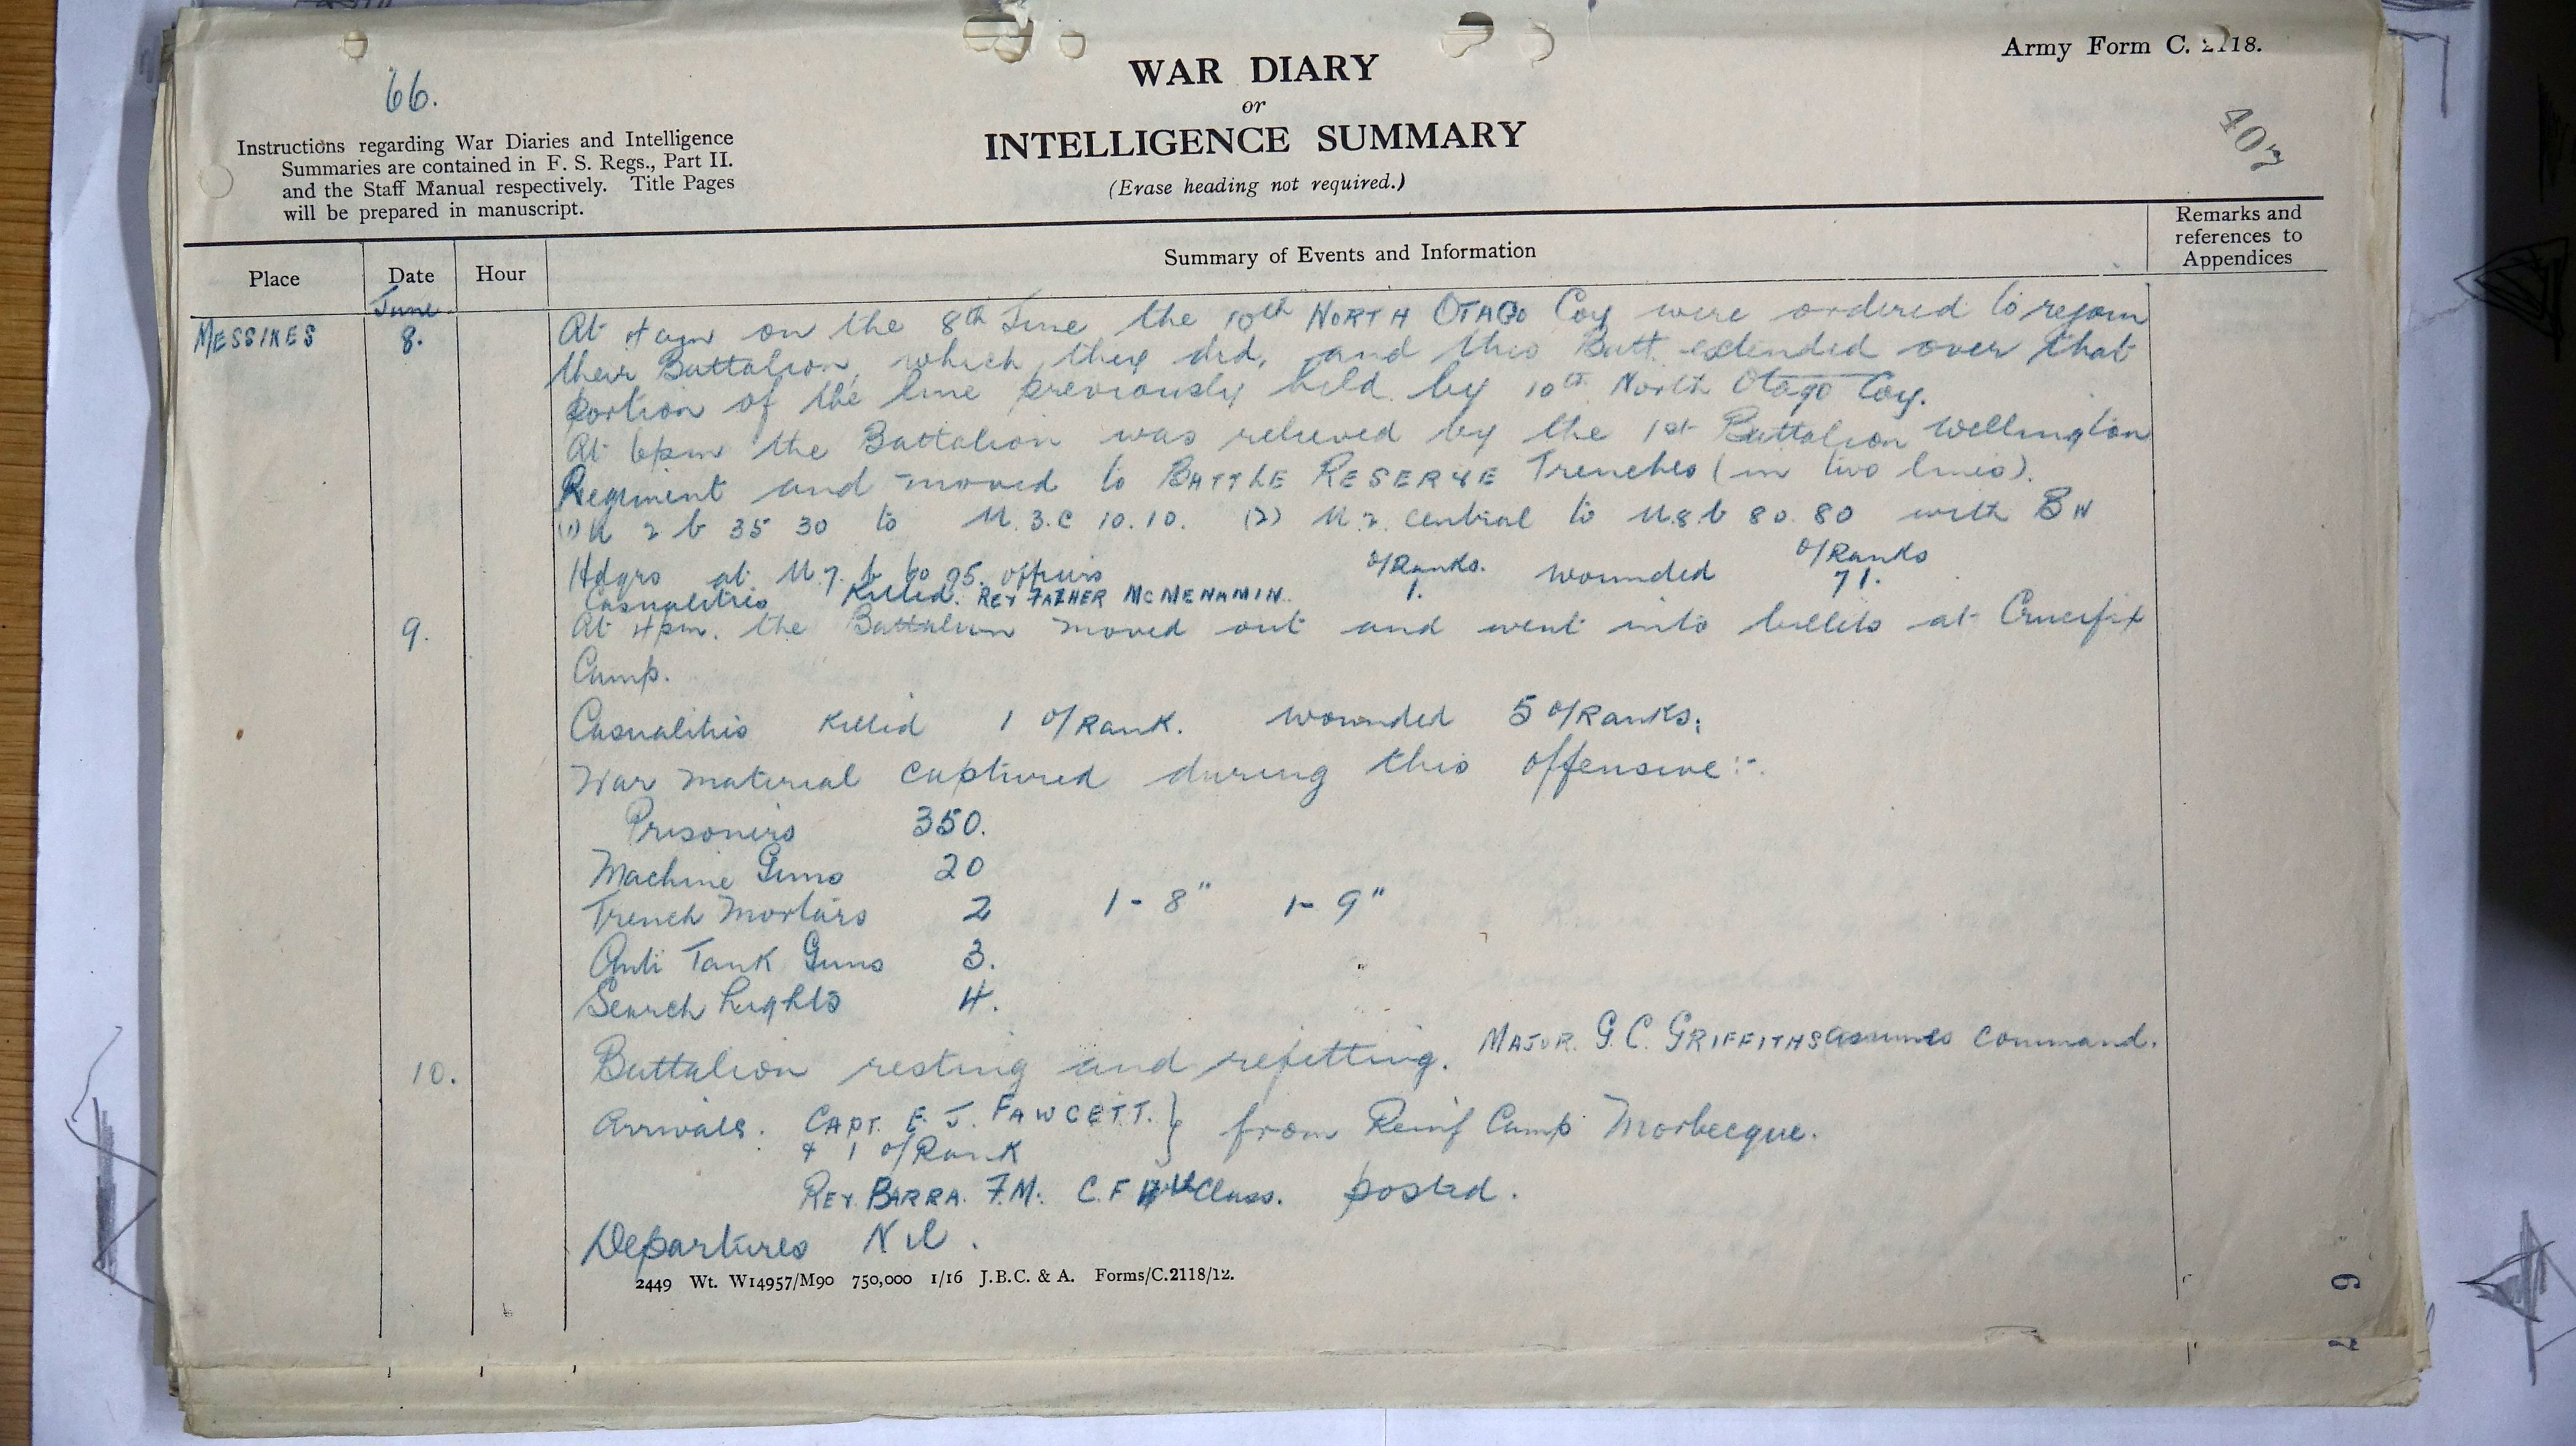 66.
Army Form C. 2118.
407
WAR DIARY
or
INTELLIGENCE SUMMARY
(Erase heading not required.)
Instructions regarding War Diaries and Intelligence
Summaries are contained in F. S. Regs., Part II.
and the Staff Manual respectively. Title Pages
will be prepared in manuscript.
Place Date Hour Summary of Events and Information Remarks and references to Appendices
June
MESSINES 8. At 4 am on the 8th June the 10th NORTH OTAGO Coy were ordered to rejoin
their Battalion, which they did, and this Batt. extended over that
portion of the line previously held by 10th North Otago Coy.
At 6pm the Battalion was relieved by the 1st Battalion Wellington
Regiment and moved to BATTLE RESERVE Trenches (in two lines).
(1) U 2 b 35 30 to U.3.c 10.10. (2) U.2. central to U.8.b 80.80 with BN
Hdqrs at U.7.b 60 95. officers O/Ranks. wounded O/Ranks
Casualities Killed. REV FATHER MCMENAMIN. 1. 71.
9. At 4pm. the Battalion moved out and went into billets at Crucifix
Camp.
Casualities Killed 1 O/Rank. wounded 5 O/Ranks.
War material captured during this offensive:-.
Prisoners 350.
Machine Guns 20
Trench Mortars 2 1- 8" 1- 9"
Anti Tank Guns 3.
Search Lights 4.
10. Battalion resting and refitting. MAJOR. G.C. GRIFFITHS assumes command.
Arrivals. CAPT. E. J. FAWCETT. } from Reinf Camp Morbecque.
& 1 O/Rank
REV. BARRA. F.M. C.F Class. posted.
Departures Nil.
2449 Wt. W14957/M90 750,000 1/16 J.B.C. & A. Forms/C.2118/12.